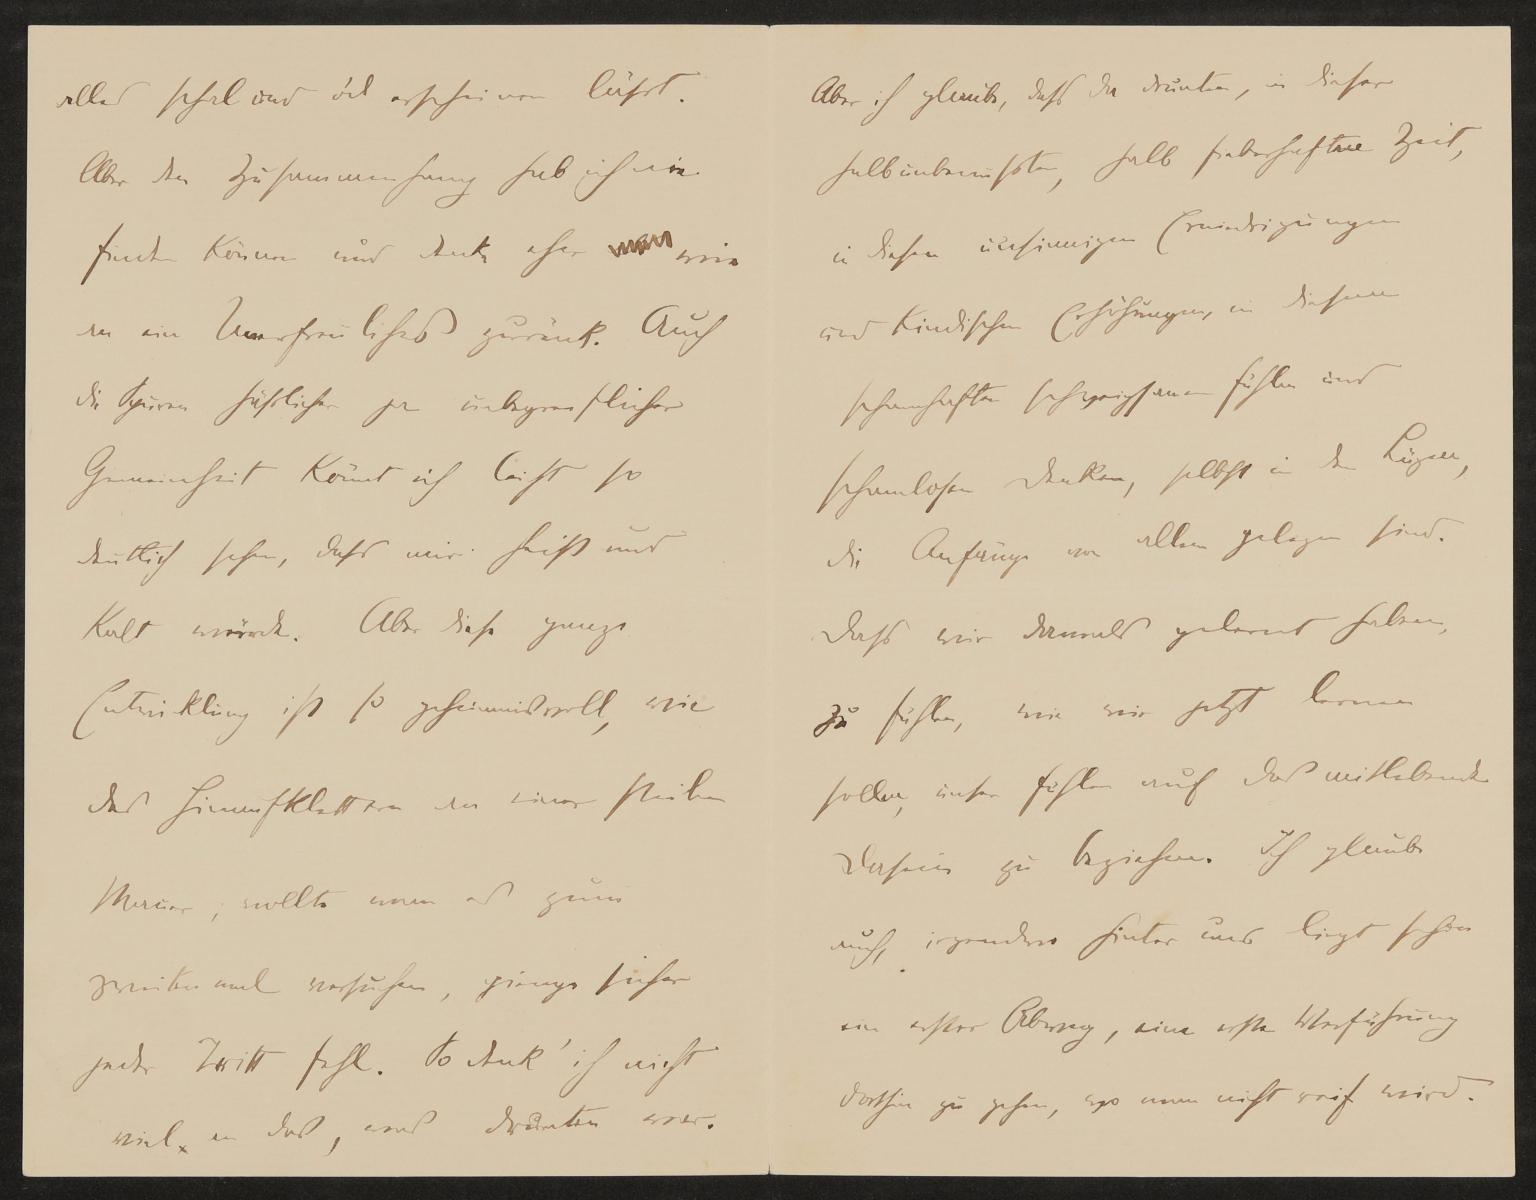 alles schal und öd erscheinen läßt.
Aber den Zusammenhang hab ich nie
finden können und denk eher wie
an ein Unerfreuliches zurück. Auch
die Spuren häßlicher ja unbegreiflicher
Gemeinheit könnt ich leicht so
deutlich sehen, dass mir heiß und
kalt würde. Aber diese ganze
Entwicklung ist so geheimnisvoll, wie
das Hinaufklettern an einer steilen
Mauer; wollte man es zum
zweiten mal versuchen, gienge sicher
jeder Tritt fehl. So denk' ich nicht
viel an das, was drunten war.
Aber ich glaube, dass da drunten, in dieser
halbunbewußten, halb fieberhaften Zeit,
in diesen unsinnigen Erniedrigungen
und kindischen Erhöhungen, in diesem
schamhaften schweigsamen fühlen und
schamlosen Denken, selbst in den Lügen,
die Anfänge von allem gelegen sind.
Dass wir damals gelernt haben,
zu fühlen, wie wir jetzt lernen
sollen, unser fühlen auf das mitlebende
Dasein zu beziehen. Ich glaube
auch, irgendwo hinter uns liegt schon
ein erster Abweg, eine erste Verführung
dorthin zu gehen, wo man nicht reif wird.